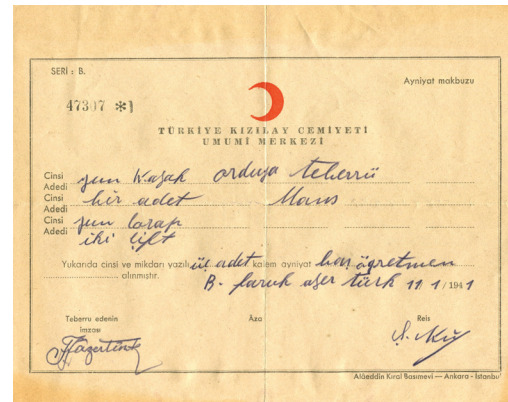 SERİ : B.
Ayniyat makbuzu
47307 *]
TÜRKİYE KIZILAY CEMİYETİ
UMUMÎ MERKEZİ
Cinsi yun Kazak orduya teberrü
Adedi bir adet
Cinsi
Adedi
Cinsi yun Corap
Adedi iki çift
Yukarıda cinsi ve mikdarı yazılı üç adet kalem ayniyat baş öğretmen
B. faruk türk 11 1 1941
olınmıştır.
Teberru edenin
imzası
Âza
Reis
Alâeddin Kıral Basımevi — Ankara - İstanbul